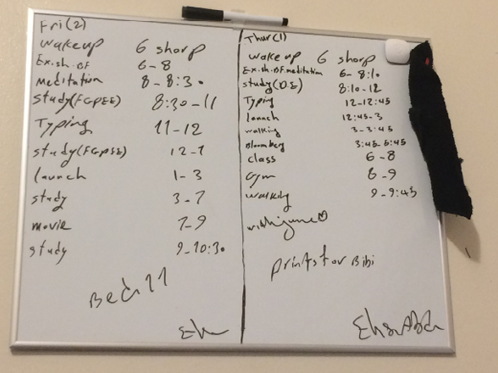 Fri(2)
wakeup 6 sharp
Ex.sh.BF 6-8
meditation 8-8:30
study(FGPEE) 8:30-11
Typing 11-12
study(FGPEE) 12-1
launch 1-3
study 3-7
movie 7-9
study 9-10:30
Bed 11
Thur(1)
wakeup 6 sharp
Ex.sh.BF.meditation 6-8:10
study(D.E) 8:10-12
Typing 12-12:45
launch 12:45-3
walking 3-3:45
Bloomberg 3:45-5:45
class 6-8
Gym 6-9
walking 9-9:45
prints for Bibi